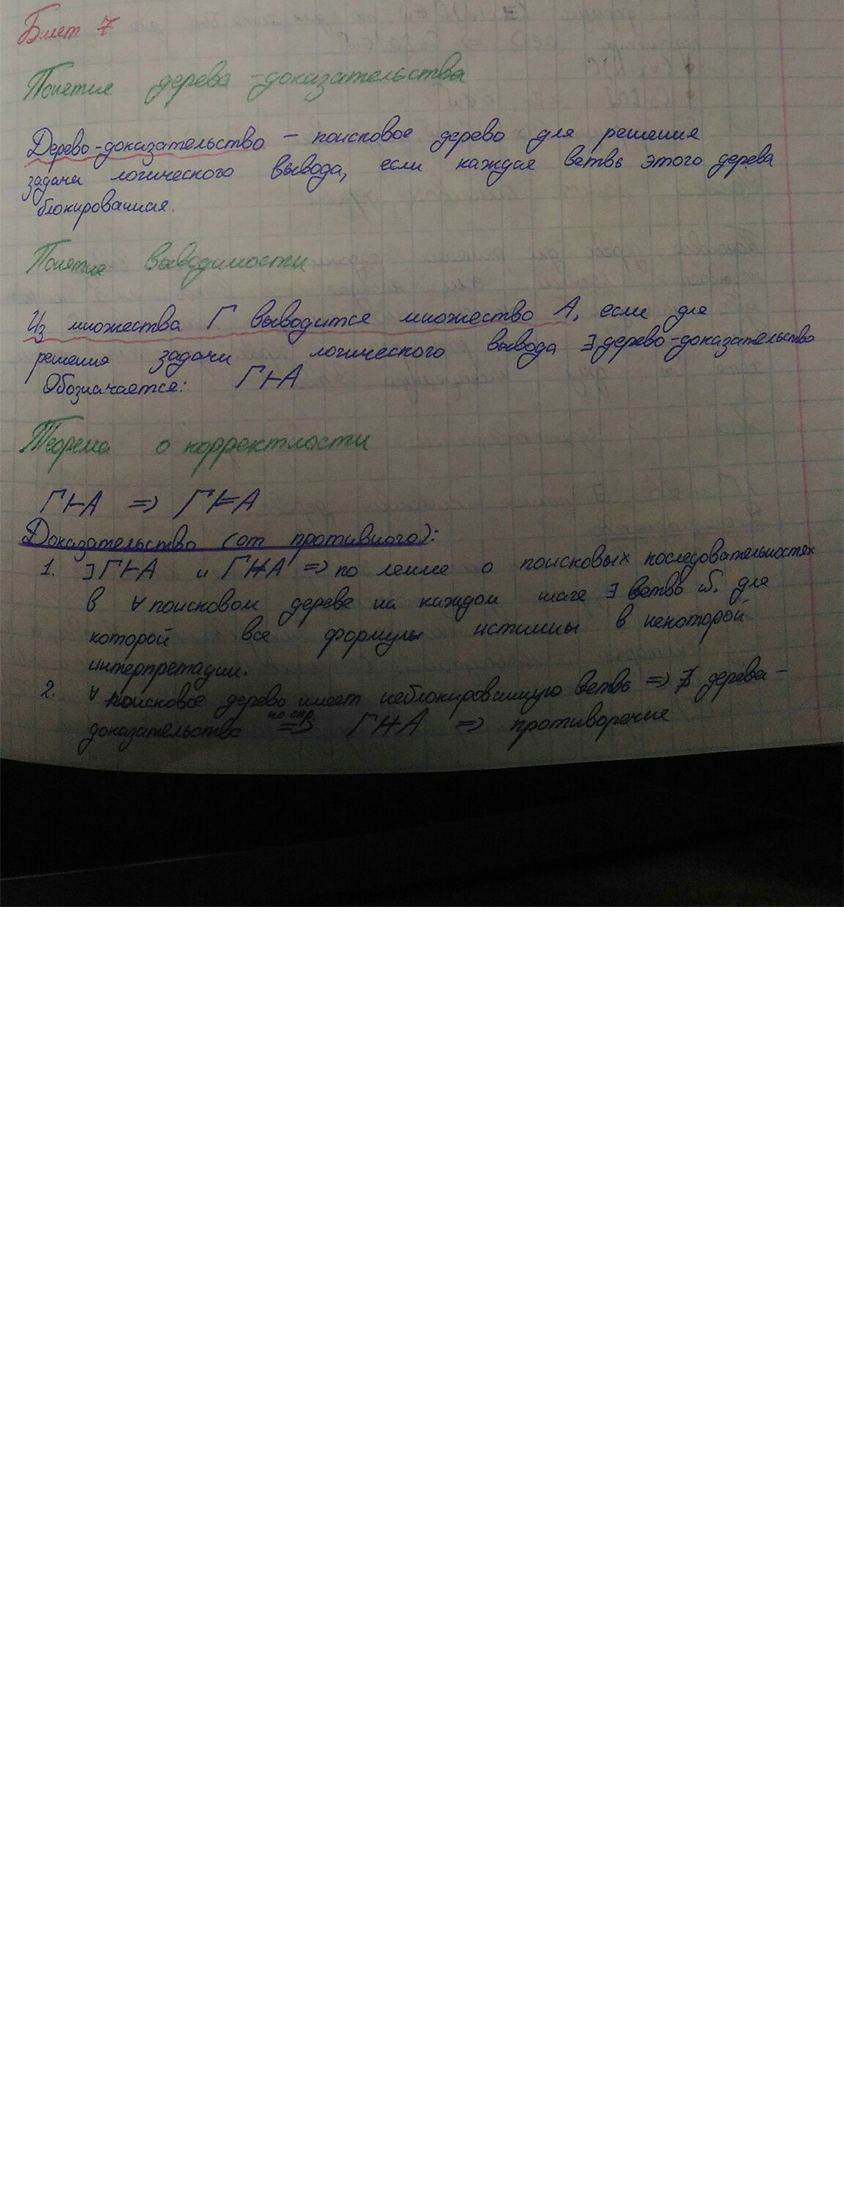 Билет 7
Понятие дерева-доказательства
Дерево-доказательство – поисковое дерево для решения
задачи логического вывода, если каждая ветвь этого дерева
блокированная.
Понятие выводимости
Из множества Г выводится множество А, если для
решения задачи логического вывода ∃ дерево-доказательство
Обозначается: Г⊢А
Теорема о корректности
Г⊢А ⇒ Г⊨А
Доказательство (от противного):
1. ∃ Г⊢А и Г⊭А ⇒ по лемме о поисковых последовательностях
в ∀ поисковом дереве на каждом шаге ∃ ветвь для
которой все формулы истинны в некоторой
интерпретации.
2. ∀ поисковое дерево имеет неблокированную ветвь ⇒ ∄ дерева-
доказательства ⇒ Г⊬А ⇒ противоречие